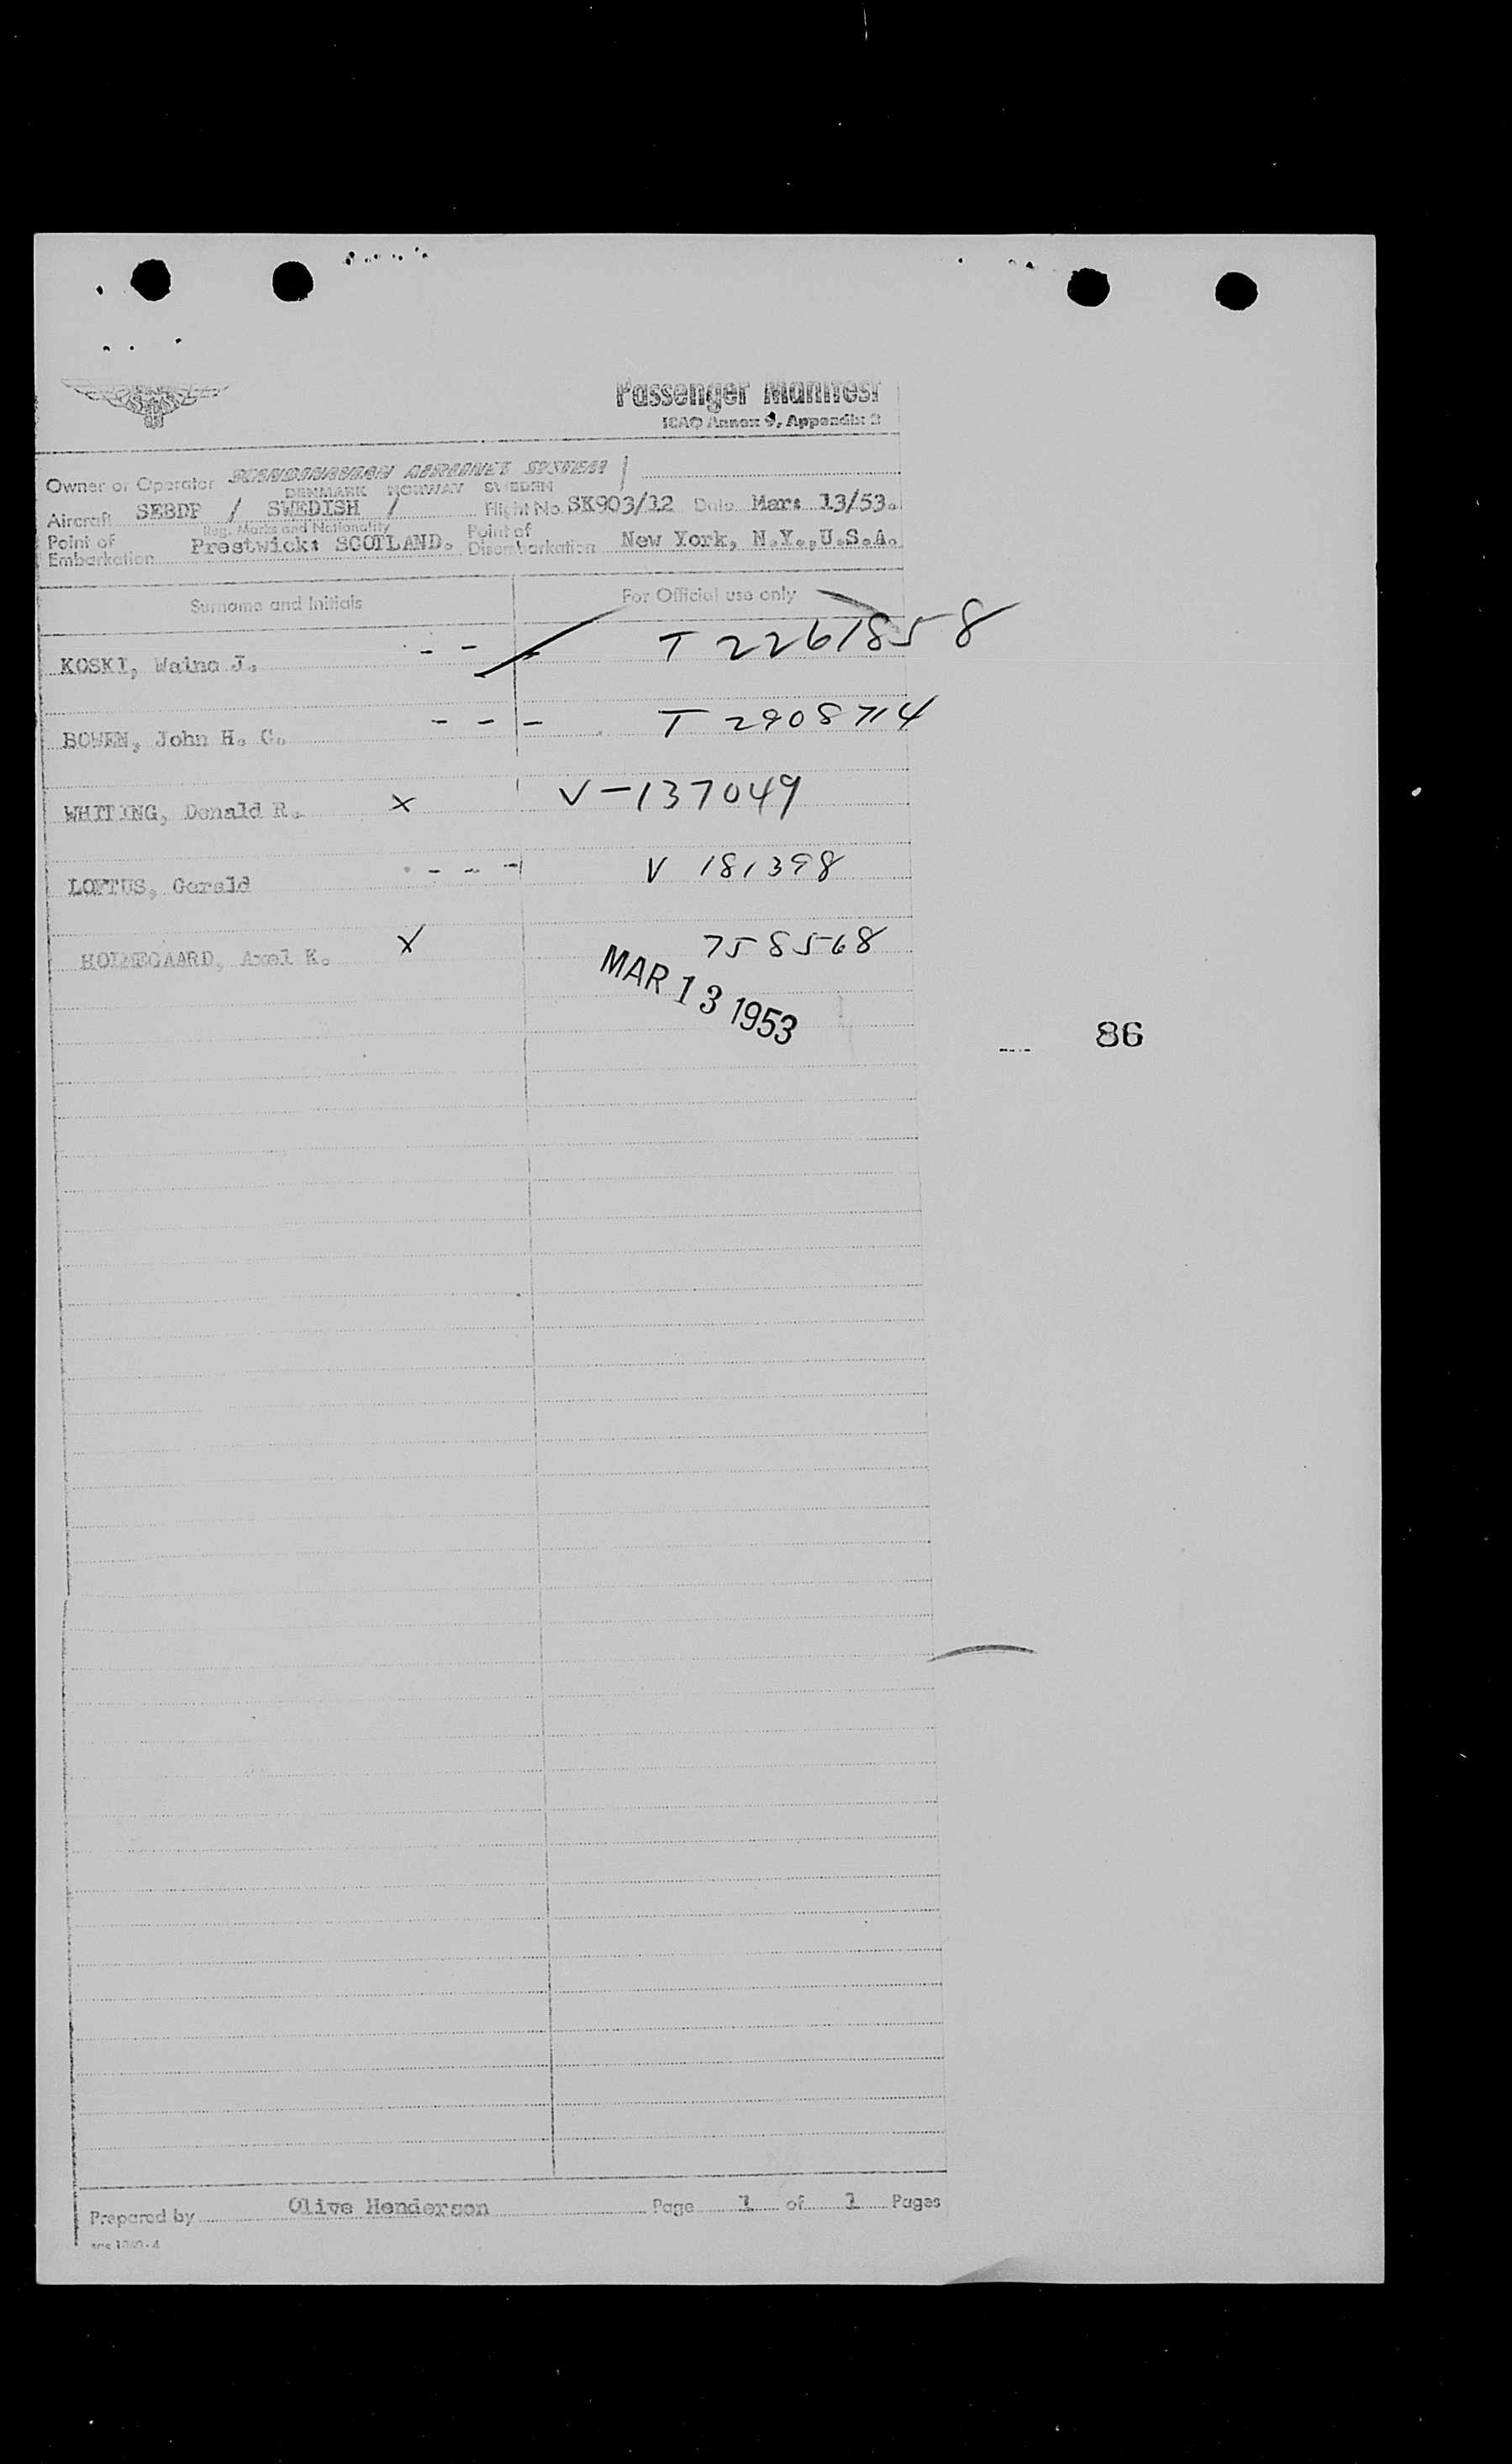 Passenger Manifest
ICAO Annex 9, Appendix 3
Owner or Operator SCANDINAVIAN AIRLINES SYSTEM
DENMARK NORWAY SWEDEN
Aircraft SEBDP / SWEDISH / Flight No. SK903/12 Date Mar: 13/53.
Reg. Marks and Nationality
Point of Embarkation Prestwick: SCOTLAND. Point of Disembarkation New York, N.Y.,U.S.A.
Surname and Initials For Official use only
KOSKI, Waino J. - - - T 2261858
BOWEN, John H. C. - - - T 2908714
WHITING, Donald R. x V-137049
LOFTUS, Gerald - - - V 181398
HOLMEGAARD, Axel K. x 7585568
MAR 13 1953
86
Prepared by Olive Henderson Page 1 of 1 Pages